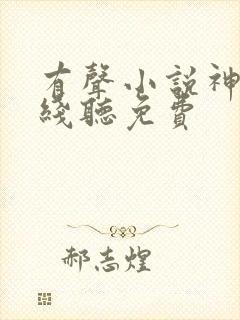 有聲小說神
綫聽免費
郝志煌